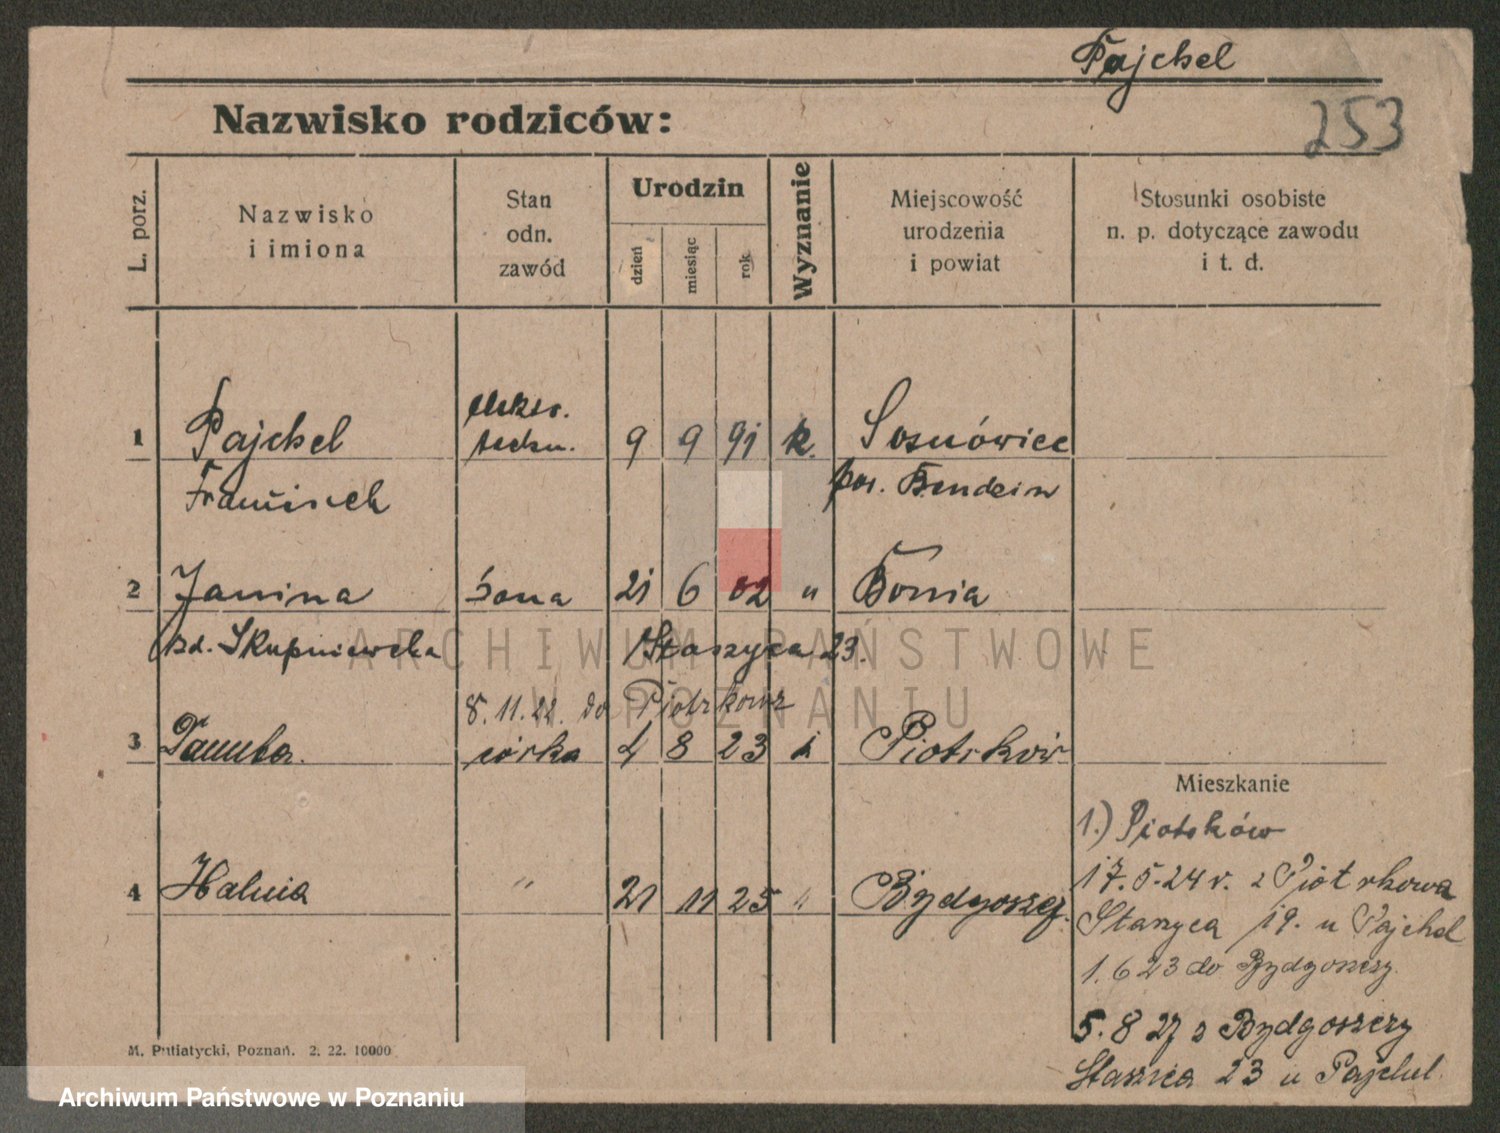 Pajchel
253
Nazwisko rodziców:
L. porz.
Nazwisko
i imiona
Stan
odn.
zawód
Urodzin
dzień
miesiąc
rok
Wyznanie
Miejscowość
urodzenia
i powiat
Stosunki osobiste
n. p. dotyczące zawodu
i t. d.
1 Pajchel techn. 9 9 91 k. Sosnówice
Franciszek pow. Bendzin
2 Janina żona 21 6 02 " Bonia
zd. Skupniewska Staszyca 23.
8. 11. 22. do Piotrkowa
3 Danuta. córka 4 8 23 k Piotrków
Mieszkanie
1.) Piotrków
17.5.24 r. z Piotrkowa
4 Halnia " 21 11 25 " Bydgoszcz.
Staszyca 19. u Pajchel
1.6 23 do Bydgoszczy.
5.8 27 z Bydgoszczy
Staszica 23 u Pajchel.
M. Putiatycki, Poznań. 2. 22. 10000
ARCHIWUM PAŃSTWOWE
W POZNANIU
Archiwum Państwowe w Poznaniu